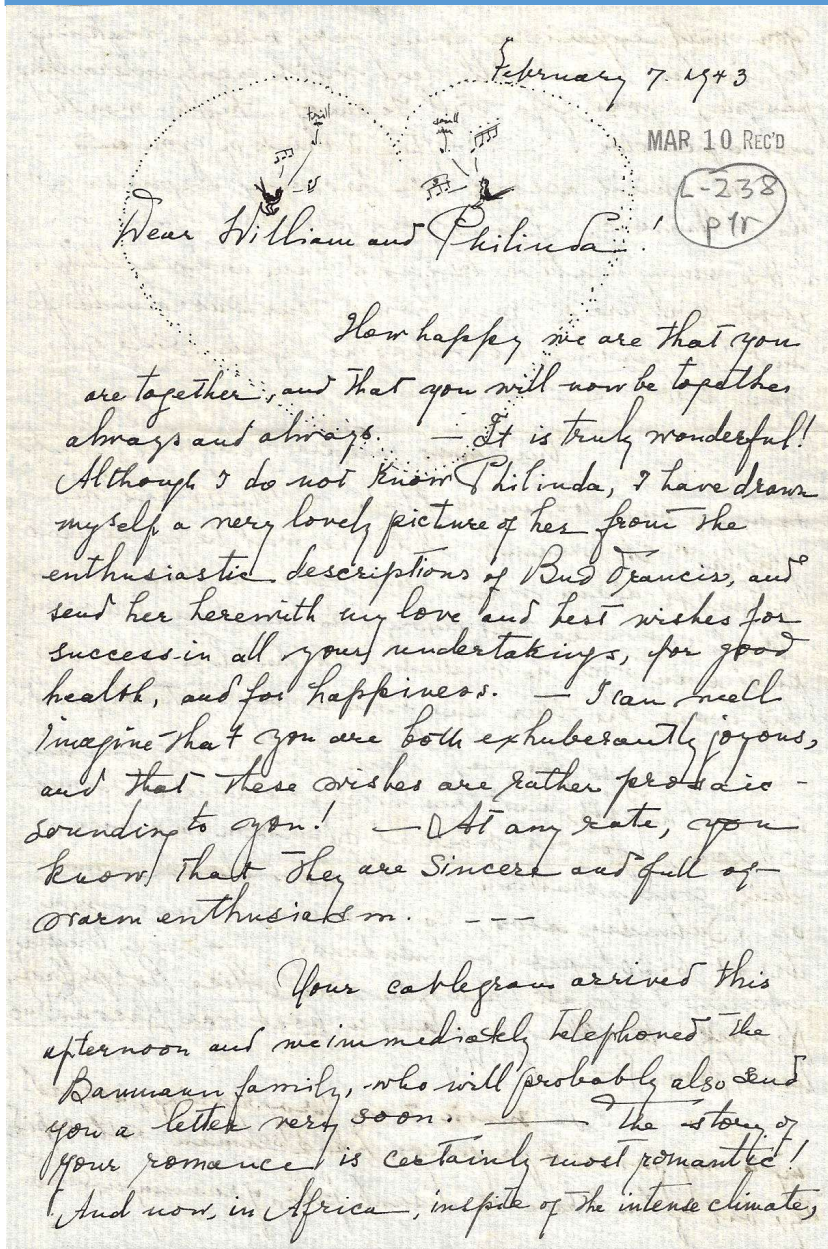 February 7. 1943
MAR 10 REC'D
L-238
trill
Dear William and Philinda!
How happy we are that you
are together, and that you will now be together
always and always. — It is truly wonderful!
Although I do not know Philinda, I have drawn
myself a very lovely picture of her from the
enthusiastic descriptions of Bud Francis, and
send her herewith my love and best wishes for
success in all your undertakings, for good
health, and for happiness. — I can well
imagine that you are both exhuberantly joyous,
and that these wishes are rather prosaic-
sounding to you! — At any rate, you
know that they are sincere and full of
warm enthusiasm. - - -
Your cablegram arrived this
afternoon and we immediately telephoned the
Baumann family, who will probably also send
you a letter very soon. — The story of
your romance is certainly most romantic!
And now, in Africa, inspite of the intense climate,